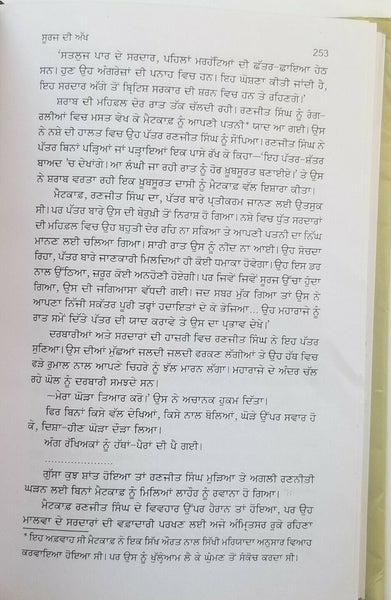 ਸੂਰਜ ਦੀ ਅੱਖ
253
'ਸਤਲੁਜ ਪਾਰ ਦੇ ਸਰਦਾਰ, ਪਹਿਲਾਂ ਮਰਹੱਟਿਆਂ ਦੀ ਛੱਤਰ-ਛਾਇਆ ਹੇਠ
ਸਨ। ਹੁਣ ਉਹ ਅੰਗਰੇਜ਼ਾਂ ਦੀ ਪਨਾਹ ਵਿਚ ਹਨ। ਇਹ ਘੋਸ਼ਣਾ ਕੀਤੀ ਜਾਂਦੀ ਹੈ,
ਇਹ ਸਰਦਾਰ ਅੱਗੋਂ ਤੋਂ ਬ੍ਰਿਟਿਸ਼ ਸਰਕਾਰ ਦੀ ਸ਼ਰਨ ਵਿਚ ਹਨ ਤੇ ਰਹਿਣਗੇ।'
ਸ਼ਰਾਬ ਦੀ ਮਹਿਫ਼ਲ ਦੇਰ ਰਾਤ ਤੱਕ ਚੱਲਦੀ ਰਹੀ। ਰਣਜੀਤ ਸਿੰਘ ਨੂੰ ਰੰਗ-
ਰਲੀਆਂ ਵਿਚ ਮਸਤ ਵੇਖ ਕੇ ਮੈਟਕਾਫ਼ ਨੂੰ ਆਪਣੀ ਪਤਨੀ* ਯਾਦ ਆ ਗਈ। ਉਸ
ਨੇ ਨਸ਼ੇ ਦੀ ਹਾਲਤ ਵਿਚ ਉਹ ਪੱਤਰ ਰਣਜੀਤ ਸਿੰਘ ਨੂੰ ਸੌਂਪਿਆ। ਰਣਜੀਤ ਸਿੰਘ ਨੇ
ਪੱਤਰ ਬਿਨਾਂ ਪੜ੍ਹਿਆਂ ਜਾਂ ਪੜ੍ਹਾਇਆਂ ਇਕ ਪਾਸੇ ਰੱਖ ਕੇ ਕਿਹਾ—'ਇਹ ਪੱਤਰ-ਸ਼ੱਤਰ
ਬਾਅਦ 'ਚ ਦੇਖਾਂਗੇ। ਆ ਲੰਘੀ ਜਾ ਰਹੀ ਰਾਤ ਨੂੰ ਹੋਰ ਖ਼ੂਬਸੂਰਤ ਬਣਾਈਏ।' ਤੇ ਉਸ
ਨੇ ਸ਼ਰਾਬ ਵਰਤਾ ਰਹੀ ਇਕ ਖ਼ੂਬਸੂਰਤ ਦਾਸੀ ਨੂੰ ਮੈਟਕਾਫ਼ ਵੱਲ ਇਸ਼ਾਰਾ ਕੀਤਾ।
ਮੈਟਕਾਫ਼, ਰਣਜੀਤ ਸਿੰਘ ਦਾ, ਪੱਤਰ ਬਾਰੇ ਪ੍ਰਤੀਕਰਮ ਜਾਣਨ ਲਈ ਉਤਸੁਕ
ਸੀ। ਪਰ ਪੱਤਰ ਬਾਰੇ ਉਸ ਦੀ ਬੇਰੁਖ਼ੀ ਤੋਂ ਨਿਰਾਸ਼ ਹੋ ਗਿਆ। ਨਸ਼ੇ ਵਿਚ ਧੁੱਤ ਸਰਦਾਰਾਂ
ਦੀ ਮਹਿਫ਼ਲ ਵਿਚ ਉਹ ਬਹੁਤੀ ਦੇਰ ਰਹਿ ਨਾ ਸਕਿਆ ਤੇ ਆਪਣੀ ਪਤਨੀ ਦਾ ਨਿੱਘ
ਮਾਣਨ ਲਈ ਚਲਿਆ ਗਿਆ। ਸਾਰੀ ਰਾਤ ਉਸ ਨੂੰ ਨੀਂਦ ਨਾ ਆਈ। ਉਹ ਸੋਚਦਾ
ਰਿਹਾ, ਪੱਤਰ ਬਾਰੇ ਜਾਣਕਾਰੀ ਮਿਲਦਿਆਂ ਹੀ ਕੋਈ ਧਮਾਕਾ ਹੋਵੇਗਾ। ਉਹ ਇਸ ਡਰ
ਨਾਲ ਉੱਠਿਆ, ਜ਼ਰੂਰ ਕੋਈ ਅਨਹੋਣੀ ਹੋਏਗੀ। ਪਰ ਜਿਵੇਂ ਜਿਵੇਂ ਸੂਰਜ ਉੱਚਾ ਹੁੰਦਾ
ਗਿਆ, ਉਸ ਦੀ ਜਗਿਆਸਾ ਵੱਧਦੀ ਗਈ। ਜਦ ਸਬਰ ਮੁੱਕ ਗਿਆ ਤਾਂ ਉਸ ਨੇ
ਆਪਣਾ ਨਿੱਜੀ ਸਕੱਤਰ ਪੂਰੀ ਤਰ੍ਹਾਂ ਹਦਾਇਤਾਂ ਦੇ ਕੇ ਭੇਜਿਆ...ਉਹ ਮਹਾਰਾਜੇ ਨੂੰ
ਰਾਤ ਸਮੇਂ ਦਿੱਤੇ ਪੱਤਰ ਦੀ ਯਾਦ ਕਰਾਵੇ ਤੇ ਉਸ ਦਾ ਪ੍ਰਭਾਵ ਦੇਖੇ।'
ਦਰਬਾਰੀਆਂ ਅਤੇ ਸਰਦਾਰਾਂ ਦੀ ਹਾਜ਼ਰੀ ਵਿਚ ਰਣਜੀਤ ਸਿੰਘ ਨੇ ਇਹ ਪੱਤਰ
ਸੁਣਿਆ। ਉਸ ਦੀਆਂ ਮੁੱਛਾਂਆਂ ਜਲਦੀ ਜਲਦੀ ਫਰਕਣ ਲੱਗੀਆਂ ਤੇ ਉਹ ਹੱਥ ਵਿਚ
ਫੜੇ ਰੁਮਾਲ ਨਾਲ ਆਪਣੇ ਚਿਹਰੇ ਨੂੰ ਝੱਲ ਮਾਰਨ ਲੱਗਾ। ਮਹਾਰਾਜੇ ਦੇ ਅੰਦਰ ਚੱਲ
ਰਹੇ ਘੋਲ ਨੂੰ ਦਰਬਾਰੀ ਸਮਝਦੇ ਸਨ।
—ਮੇਰਾ ਘੋੜਾ ਤਿਆਰ ਕਰੋ।' ਉਸ ਨੇ ਅਚਾਨਕ ਹੁਕਮ ਦਿੱਤਾ।
ਫਿਰ ਬਿਨਾਂ ਕਿਸੇ ਵੱਲ ਦੇਖਿਆਂ, ਕਿਸੇ ਨਾਲ ਬੋਲਿਆਂ, ਘੋੜੇ ਉੱਪਰ ਸਵਾਰ ਹੋ
ਕੇ, ਦਿਸ਼ਾ-ਹੀਣ ਘੋੜਾ ਦੌੜਾ ਲਿਆ।
ਅੰਗ ਰੱਖਿਅਕਾਂ ਨੂੰ ਹੱਥਾਂ-ਪੈਰਾਂ ਦੀ ਪੈ ਗਈ।
....................
ਗੁੱਸਾ ਕੁਝ ਸ਼ਾਂਤ ਹੋਇਆ ਤਾਂ ਰਣਜੀਤ ਸਿੰਘ ਮੁੜਿਆ ਤੇ ਅਗਲੀ ਰਣਨੀਤੀ
ਘੜਨ ਲਈ ਬਿਨਾਂ ਮੈਟਕਾਫ਼ ਨੂੰ ਮਿਲਿਆਂ ਲਾਹੌਰ ਨੂੰ ਰਵਾਨਾ ਹੋ ਗਿਆ।
ਮੈਟਕਾਫ਼ ਰਣਜੀਤ ਸਿੰਘ ਦੇ ਵਿਵਹਾਰ ਉੱਪਰ ਹੈਰਾਨ ਤਾਂ ਹੋਇਆ, ਪਰ ਉਹ
ਮਾਲਵਾ ਦੇ ਸਰਦਾਰਾਂ ਦੀ ਵਫ਼ਾਦਾਰੀ ਪਰਖਣ ਲਈ ਅਜੇ ਅੰਮ੍ਰਿਤਸਰ ਰੁਕੇ ਰਹਿਣਾ
* ਇਹ ਅਫ਼ਵਾਹ ਸੀ ਮੈਟਕਾਫ਼ ਨੇ ਇਕ ਸਿੱਖ ਔਰਤ ਨਾਲ ਸਿੱਖੀ ਮਰਿਯਾਦਾ ਅਨੁਸਾਰ ਵਿਆਹ
ਕਰਵਾਇਆ ਹੋਇਆ ਸੀ। ਪਰ ਉਸ ਨੂੰ ਖੁੱਲ੍ਹੇਆਮ ਲੈ ਕੇ ਘੁੰਮਣ ਤੋਂ ਸੰਕੋਚ ਕਰਦਾ ਸੀ।